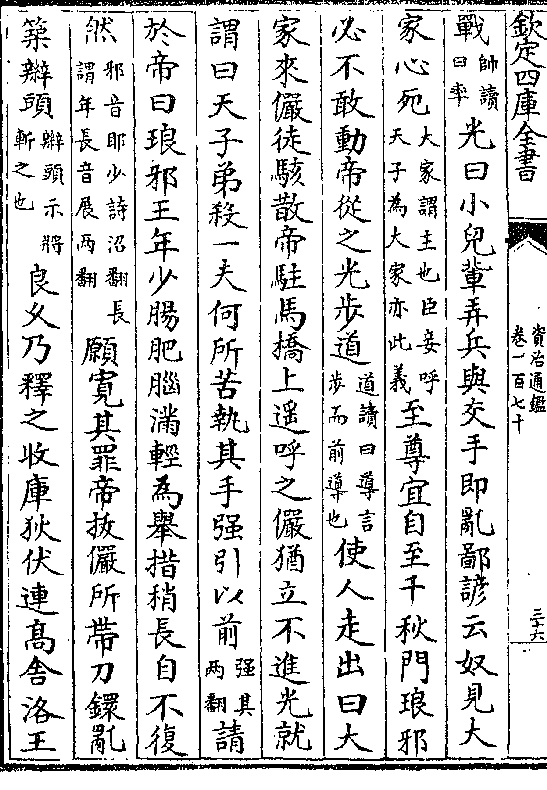 欽定四庫全書
資治通鑑
卷一百七十
三十六
戰帥讀曰率光曰小兒輩弄兵與交手即亂鄙諺云奴見大
家心死大家謂主也臣妾呼天子為大家亦此義至尊宜自至千秋門琅邪
必不敢動帝從之光步道道讀曰導言步而前導也使人走出曰大
家來儼徒駭散帝駐馬橋上遥呼之儼猶立不進光就
謂曰天子弟殺一夫何所苦執其手强引以前强其兩翻請
於帝曰琅邪王年少腸肥腦滿輕為舉措稍長自不復
然邪音耶少詩沼翻長謂年長音展兩翻願寛其罪帝拔儼所帶刀鐶亂
築辮頭辮頭示將斬之也良久乃釋之收庫狄伏連髙舎洛王